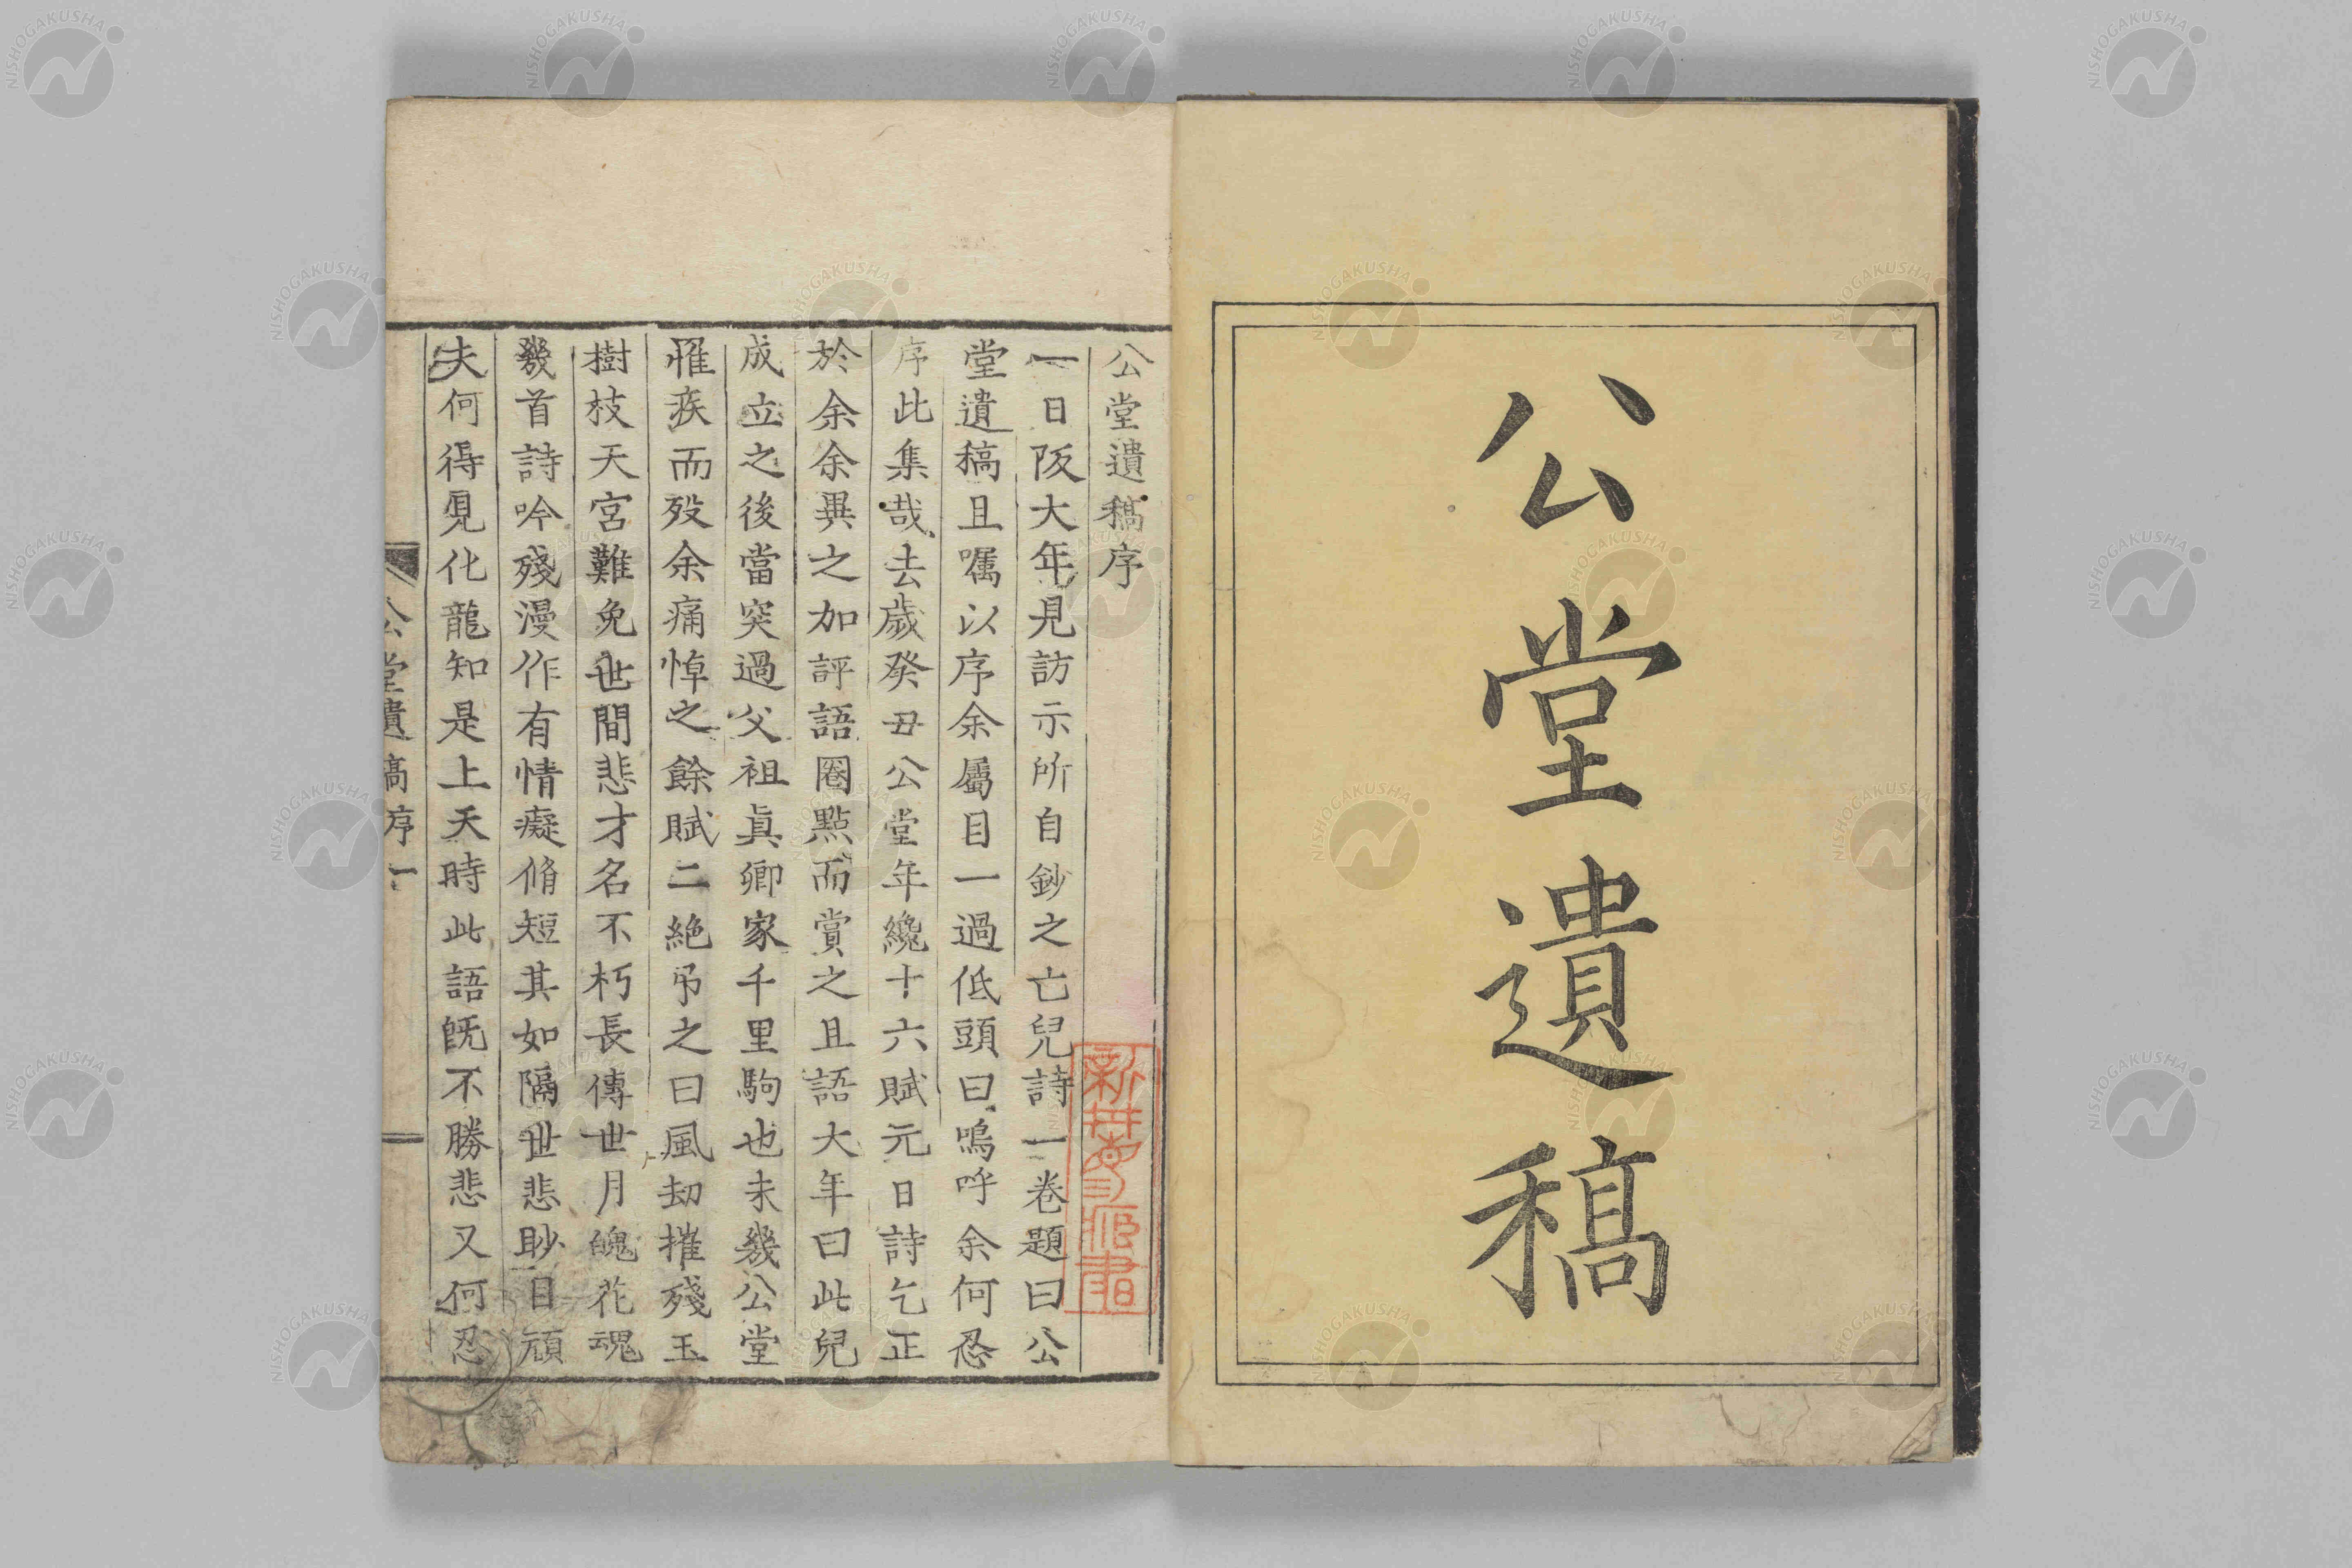 公堂遺稿
公堂遺稿序
一日阪大年見訪示所自鈔之亡兒詩一卷題曰公
堂遺稿且嘱以序余屬目一過低頭曰嗚呼余何忍
序此集哉去歲癸丑公堂年纔十六賦元日詩乞正
於余余異之加評語圈點而賞之且語大年曰此兒
成立之後當突過父祖眞卿家千里駒也未幾公堂
罹疾而歿余痛悼之餘賦二絶弔之曰風刧摧殘玉
樹枝天宮難免世間悲才名不朽長傳世月魄花魂
幾首詩吟殘漫作有情癡脩短其如隔世悲眇目頑
夫何得見化龍知是上天時此語旣不勝悲又何忍
公堂遺稿序 一
NISHOGAKUSHA